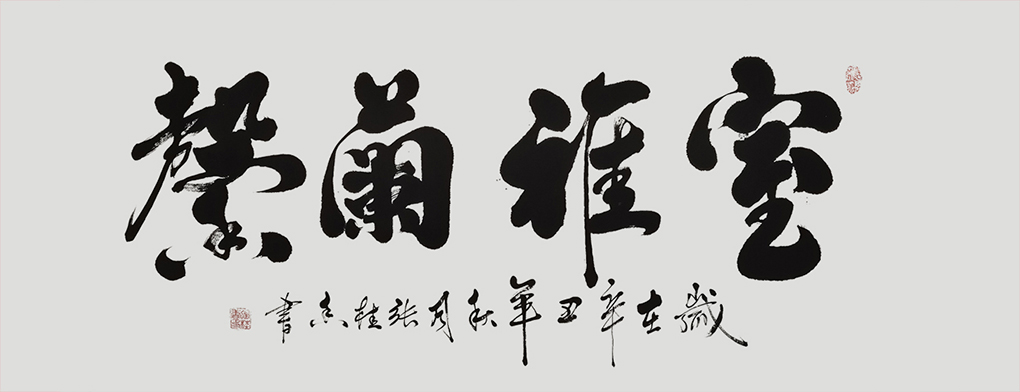 室雅蘭馨
歲在辛丑年秋月张桂书